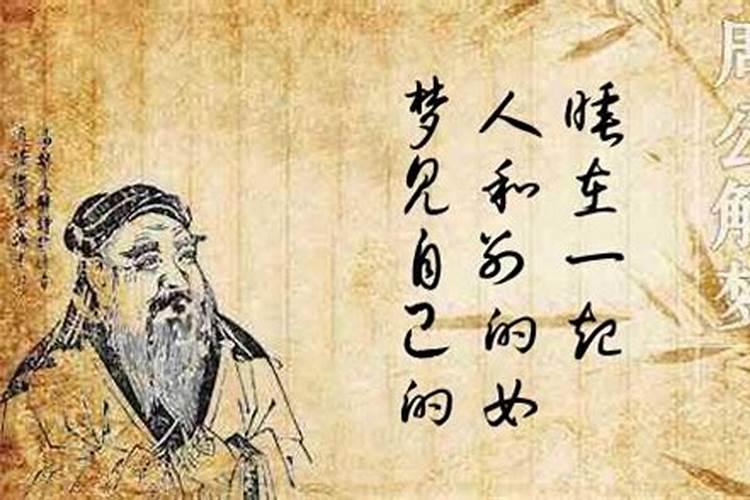 梦见自己的
人和别的女
睡在一起
周公解梦